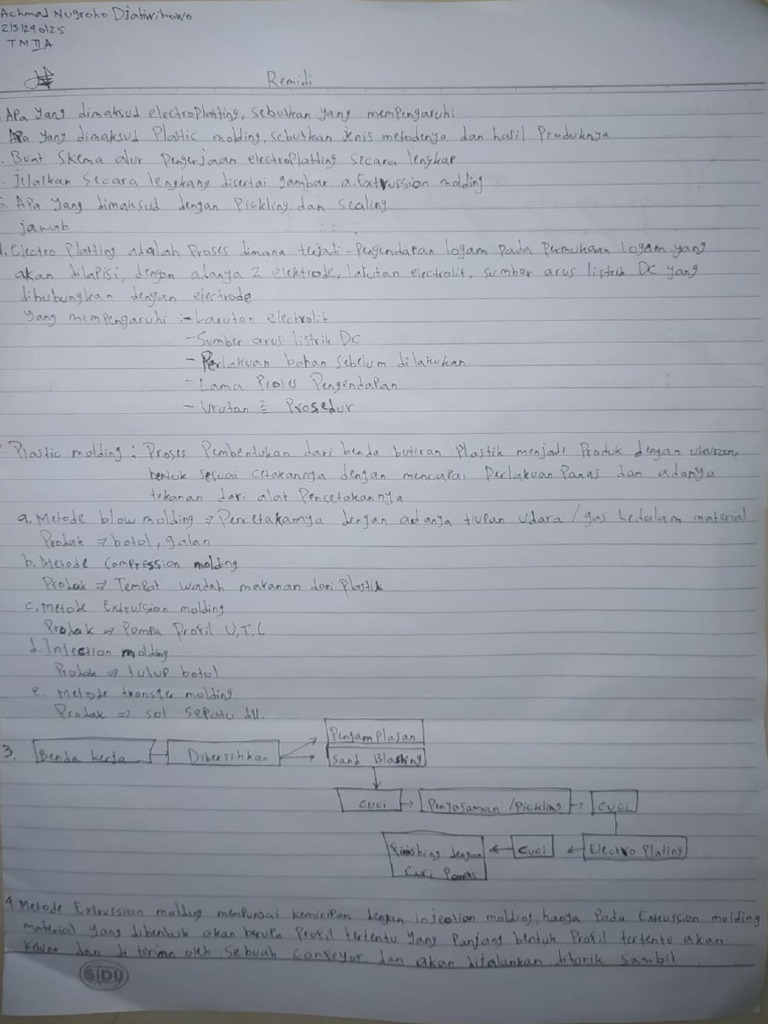 Achmad Nugroho Djatiwibowo
213124025
TM II A
Remidi
Apa yang dimaksud electroplatting, sebutkan yang mempengaruhi
Apa yang dimaksud Plastic molding, sebutkan jenis metodenya dan hasil Produknya
. Buat Skema alur Pengerjaan electroplatting secara lengkap
. Jelaskan secara lengkang disertai gambar a. Extrussion molding
5. Apa yang dimaksud dengan Pickling dan Scaling
jawab
1. Electro Platting adalah Proses dimana terjadi Pengendapan logam pada Permukaan logam yang
akan dilapisi, dengan adanya 2 elektrode, larutan electrolit, sumber arus listrik DC yang
dihubungkan dengan electrode
yang mempengaruhi :- Larutan electrolit
- Sumber arus listrik DC
- Perlakuan bahan sebelum dilakukan
- Lama Proses Pengendapan
- Urutan Prosedur
Plastic molding : Proses Pembentukan dari benda butiran Plastik menjadi Produk dengan ukuran,
bentuk sesuai cetakannya dengan mencapai Perlakuan Panas dan adanya
tekanan dari alat Pencetakannya
a. Metode blow molding => Pencetakannya dengan adanya tiupan udara / gas kedalam material
Produk => botol, galan
b. Metode Compression molding
Produk => Tempat wadah makanan dari Plastik
c. Metode Extrussion molding
Produk => Pompa Profil U, T, L
d. Injection molding
Produk => tutup botol
e. Metode transfer molding
Produk => sol sepatu dll.
Pengamplasan
3. Benda kerja Dibersihkan Sand Blasting
Cuci Pengasaman / Pickling Cuci
Finishing dengan Cuci Electro Plating
Cuci Panas
4. Metode Extrussion molding mempunyai kemiripan dengan injection molding, hanya Pada Extrussion molding
material yang dibentuk akan berupa Profil tertentu yang Panjang bentuk Profil tertentu akan
keluar dan di terima oleh sebuah conveyor dan akan dijalankan ditarik sambil
SIDU